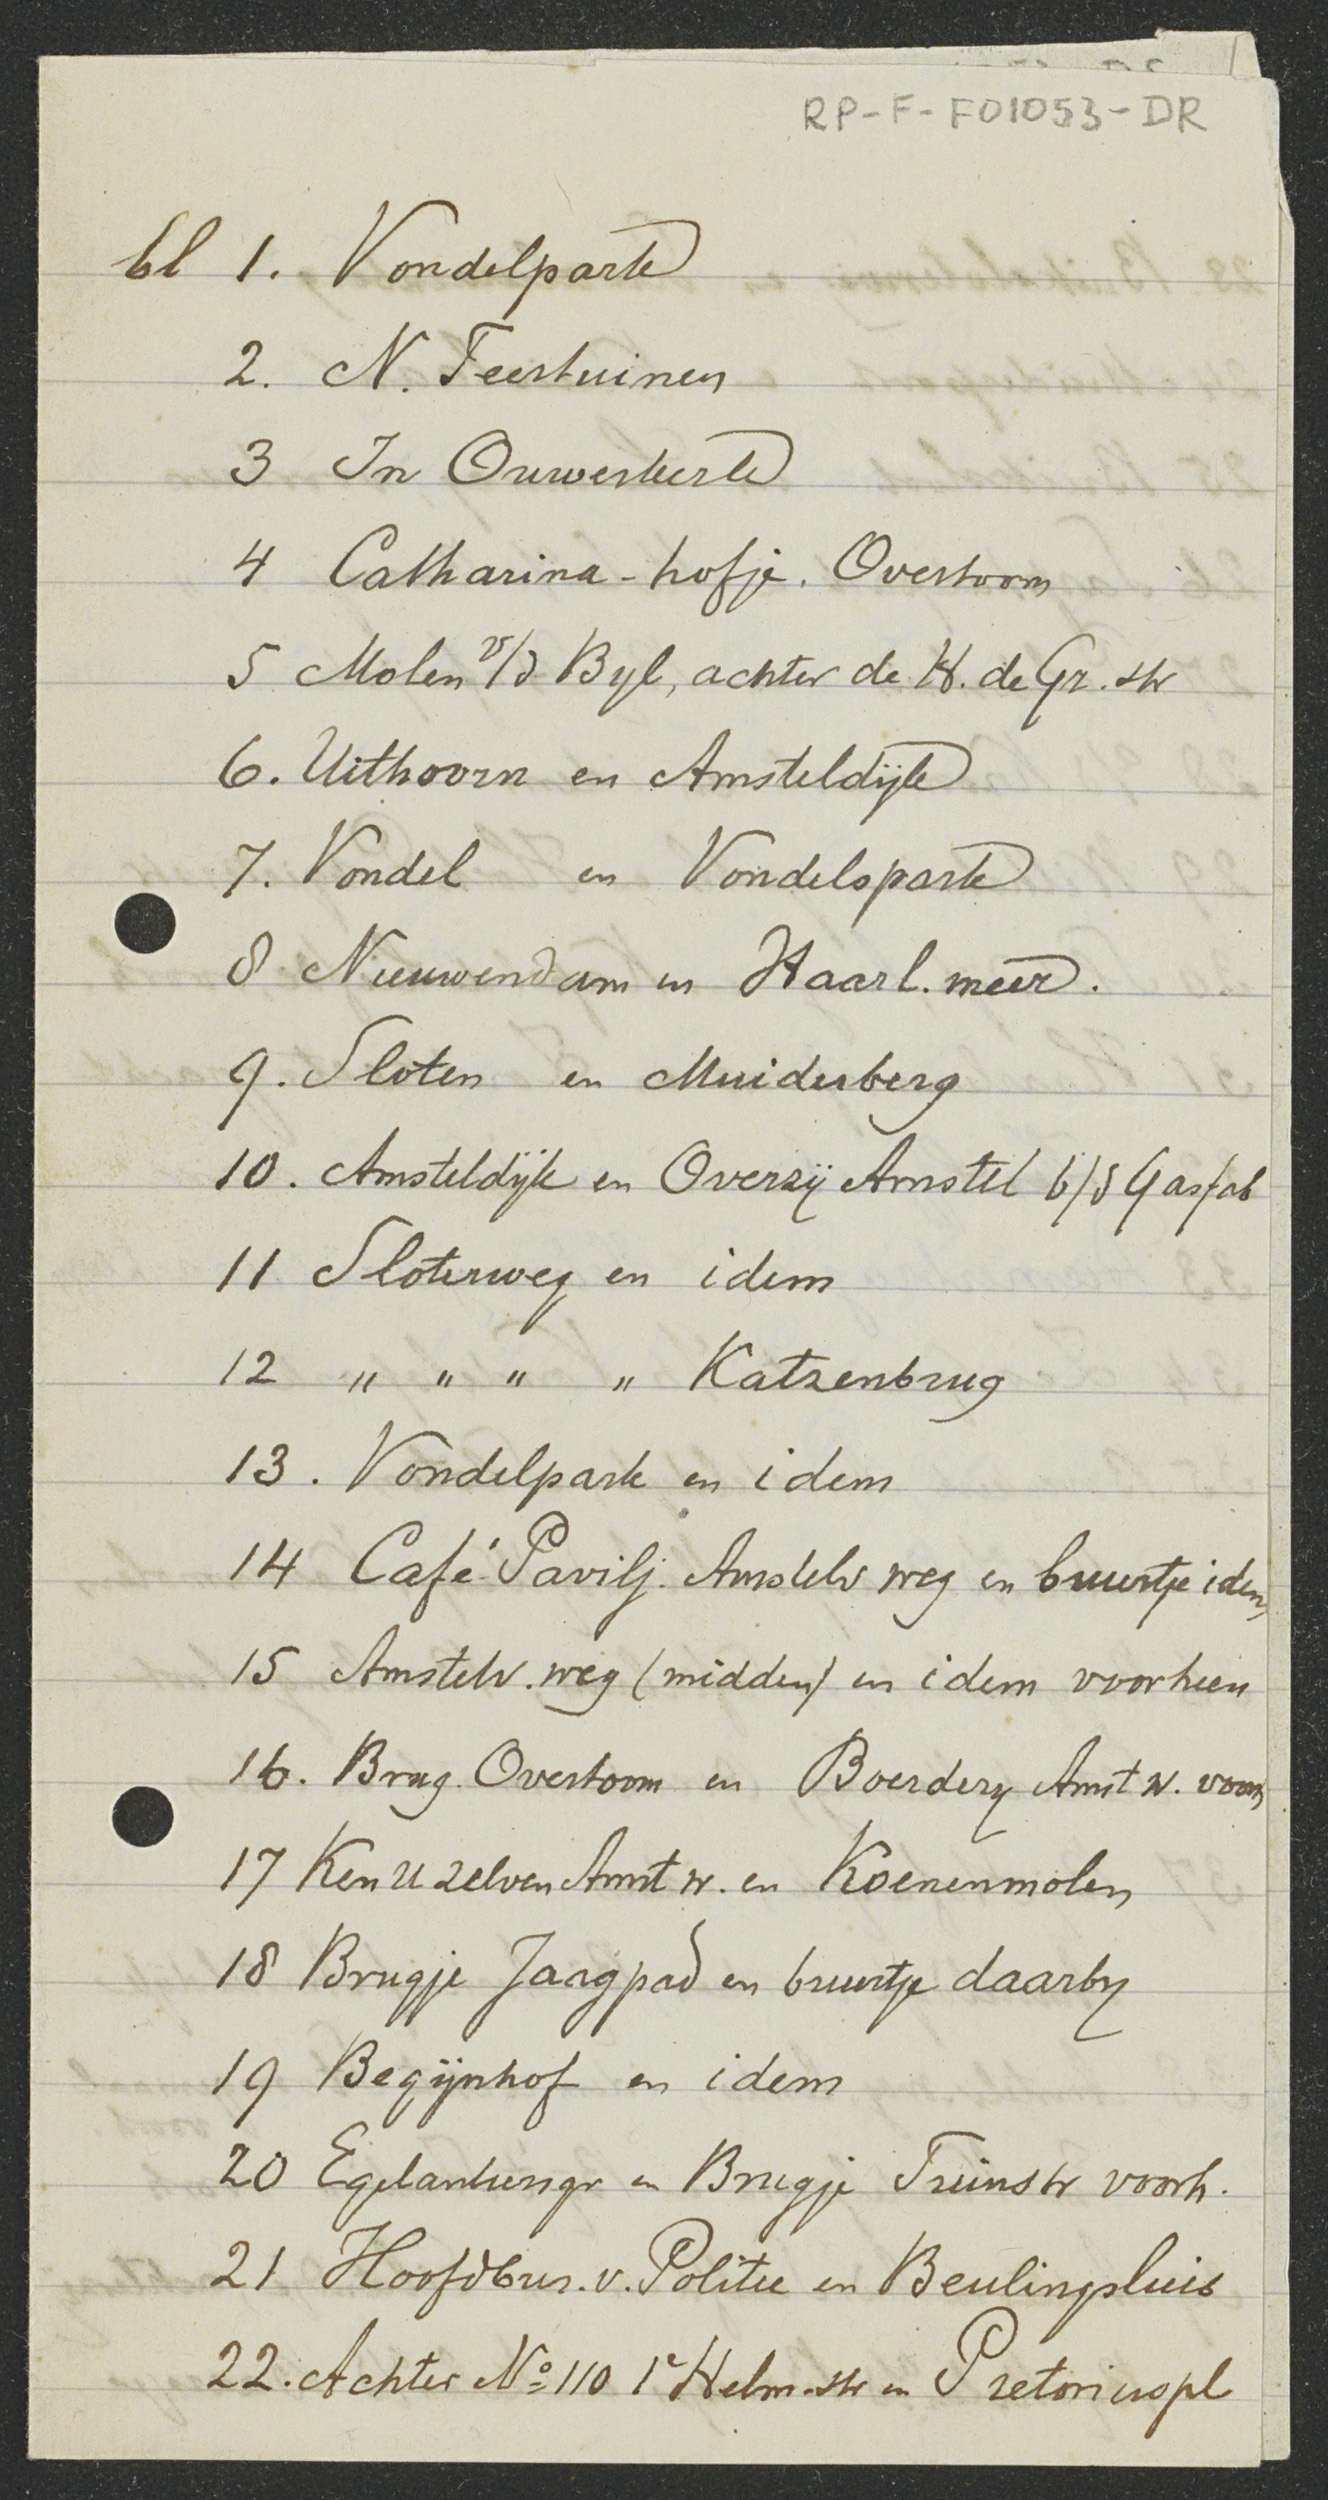 RP-F-F01053-DR
bl 1. Vondelpark
2. N. Feestuinen
3 In Ouwerkerk
4 Catharina-hofje. Overtoom
5 Molen v/d Byl, achter de H. de Gr. str
6. Uithoorn en Amsteldijk
7. Vondel en Vondelspark
8 Nieuwendam en Haarl. meer.
9. Sloten en Muiderberg
10. Amsteldijk en Overzij Amstel b/d Gasfab
11 Sloterweg en idem
12 " " " " Katzenbrug
13. Vondelpark en idem
14 Café Pavilj. Amstelv weg en buurtje idem
15 Amstelv. weg (midden) en idem voorheen
16. Brug Overtoom en Boerdery Amst w. voorh
17 Ken U zelven Amst w. en Koenenmolen
18 Brugje Jaagpad en buurtje daarby
19 Begijnhof en idem
20 Egelantiersgr en Brugje Tuinstr voorh.
21 Hoofdbur. v. Politie en Beulingsluis
22. Achter No 110 1e Helm. str en Pretoriuspl